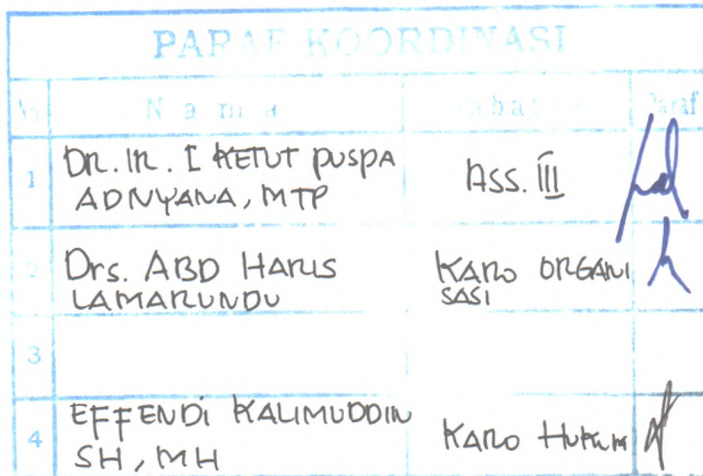 PARAF KOORDINASI
No Nama Jabatan Paraf
1 DR. IR. I KETUT PUSPA ADNYANA, MTP ASS. III
2 Drs. ABD HARIS LAMARUNDU KARO ORGANI SASI
3
4 EFFENDI KALIMUDDIN SH, MH KARO HUKUM